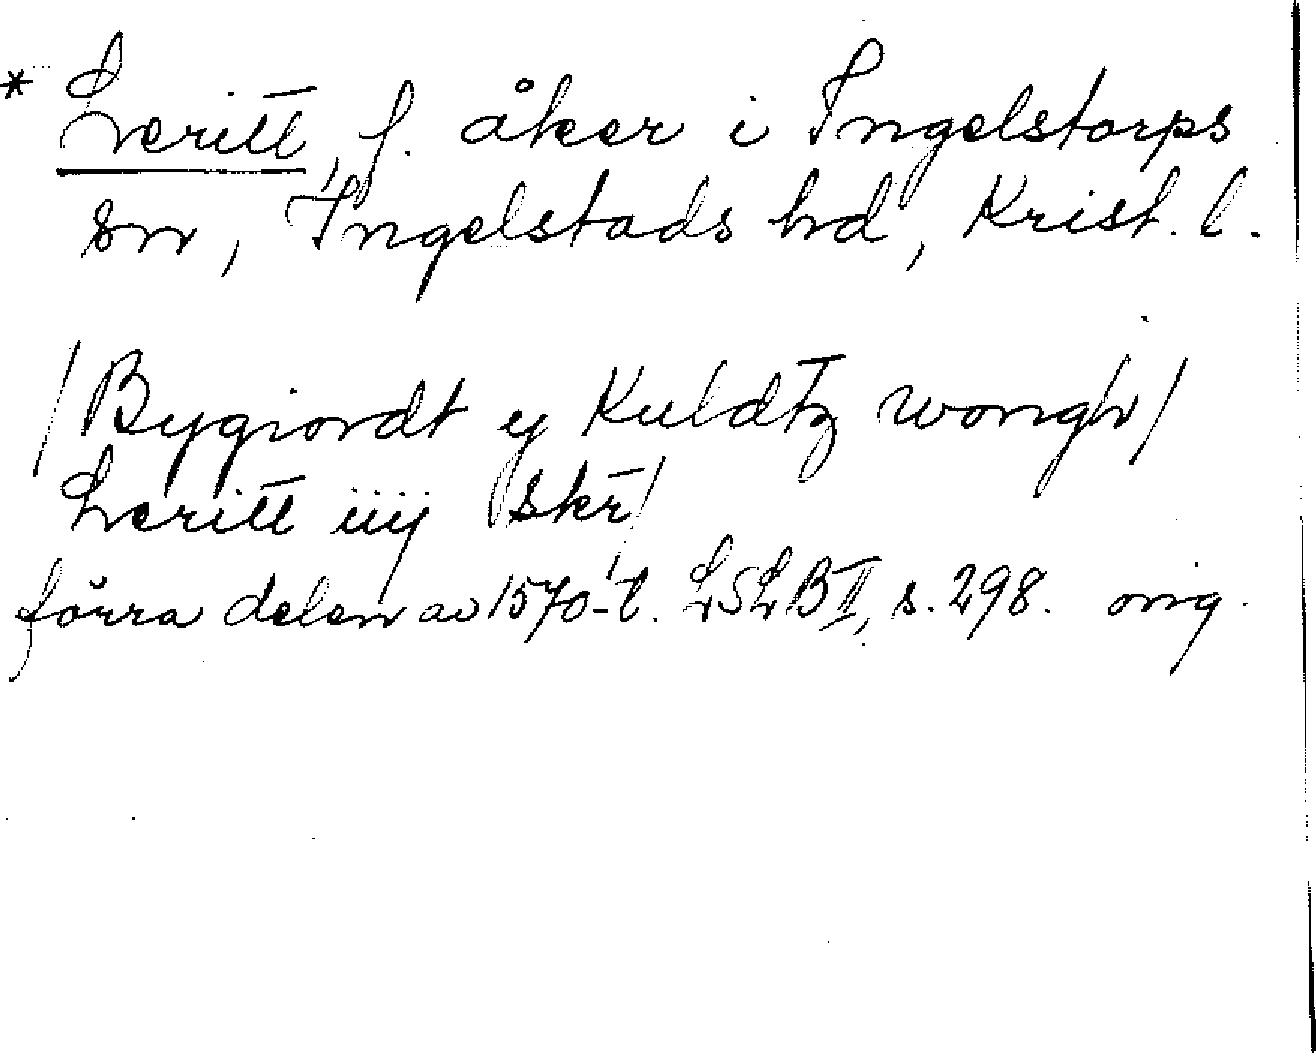 * Leritt, f. åker i Ingelstorps
sn, Ingelstads hd, Krist. l.
/Bygiordt y Kuldtz wongh/
Leritt iiij skr/
förra delen av 1570-t. LSLB II, s. 298. orig.